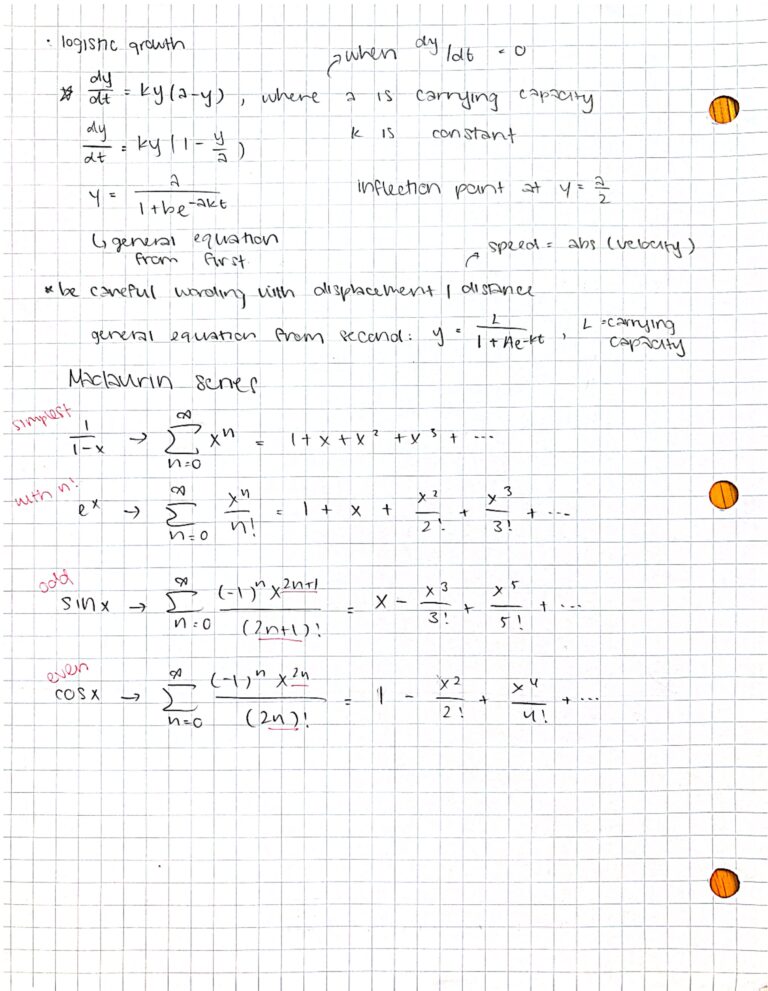 · logistic growth
when dy/dt = 0
* dy/dt = ky(a-y), where a is carrying capacity
dy/dt = ky(1 - y/a)
k is constant
y = a/(1+be^-akt)
inflection point at y = a/2
↳ general equation from first
speed = abs (velocity)
* be careful wording with displacement / distance
general equation from second: y = L/(1+Ae^-kt), L = carrying capacity
Maclaurin series
simplest
1/(1-x) → ∑ n=0 ∞ x^n = 1 + x + x^2 + x^3 + ...
with n!
e^x → ∑ n=0 ∞ x^n/n! = 1 + x + x^2/2! + x^3/3! + ...
odd
sinx → ∑ n=0 ∞ (-1)^n x^2n+1/(2n+1)! = x - x^3/3! + x^5/5! + ...
even
cosx → ∑ n=0 ∞ (-1)^n x^2n/(2n)! = 1 - x^2/2! + x^4/4! + ...